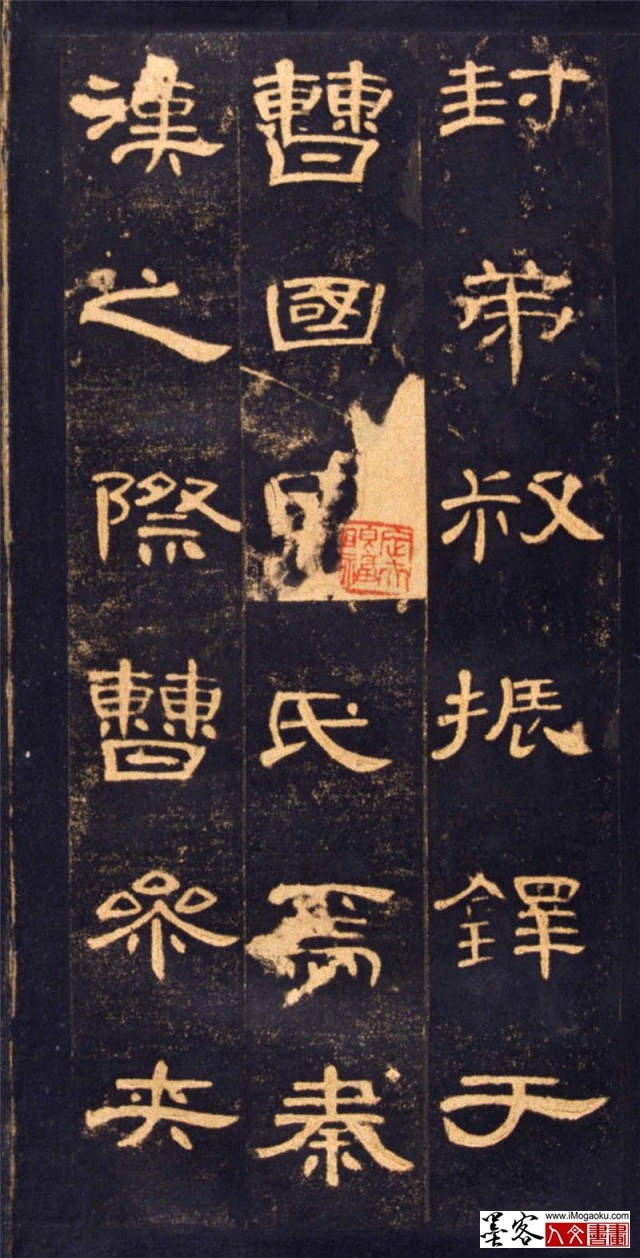 封弟叔振鐸于
曹國氏焉秦
漢之際曹參夾
墨客
www.iMogaoku.com
人文書畫